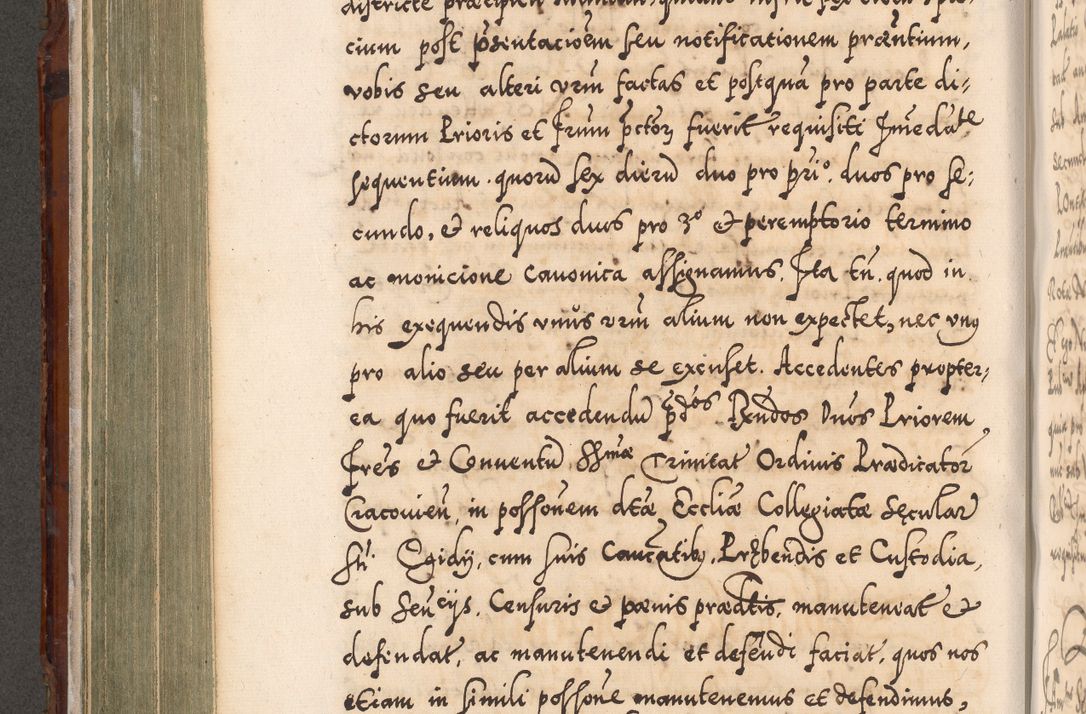 districte præcipien
cium post pñsentacioẽm seu notificationem præñtium,
vobis seu alteri vrm̃ factas et postquã pro parte di-
ctorum Prioris et Frum̃ p̃ctorʒ fuerit requisiti Jmedate
sequentium. quorũ sex dierũ duo pro pri°. duos pro se-
cundo, & reliquos duos pro 3° & peremptorio termino
ac monicione canonica assignamus. Jta tñ. quod in
his exequendis vnus vrm̃ alium non expectet, nec vnꝰ
pro alio seu per alium se excuset. Accedentes propter-
ea quo fuerit accedendũ p̃dctos Rẽndos Dnõs Priorem,
Fres̃ & Conventũ SSmæ Trinitat Ordinis Prædicator̃
Cracovieñ, in possoñem dtæ̃ Eccliæ̃ Collegiatæ Sęcular
Sti Egidij, cum suis Cancatibꝰ. Pręben̄dis et Custodia,
sub Seueijs. Censuris & pœnis prædtis̃, manuteneat &
defendat, ac manutenendi et defeñdi faciat, quos nos
etiam in simili possoñe manutenemus et defendimus,